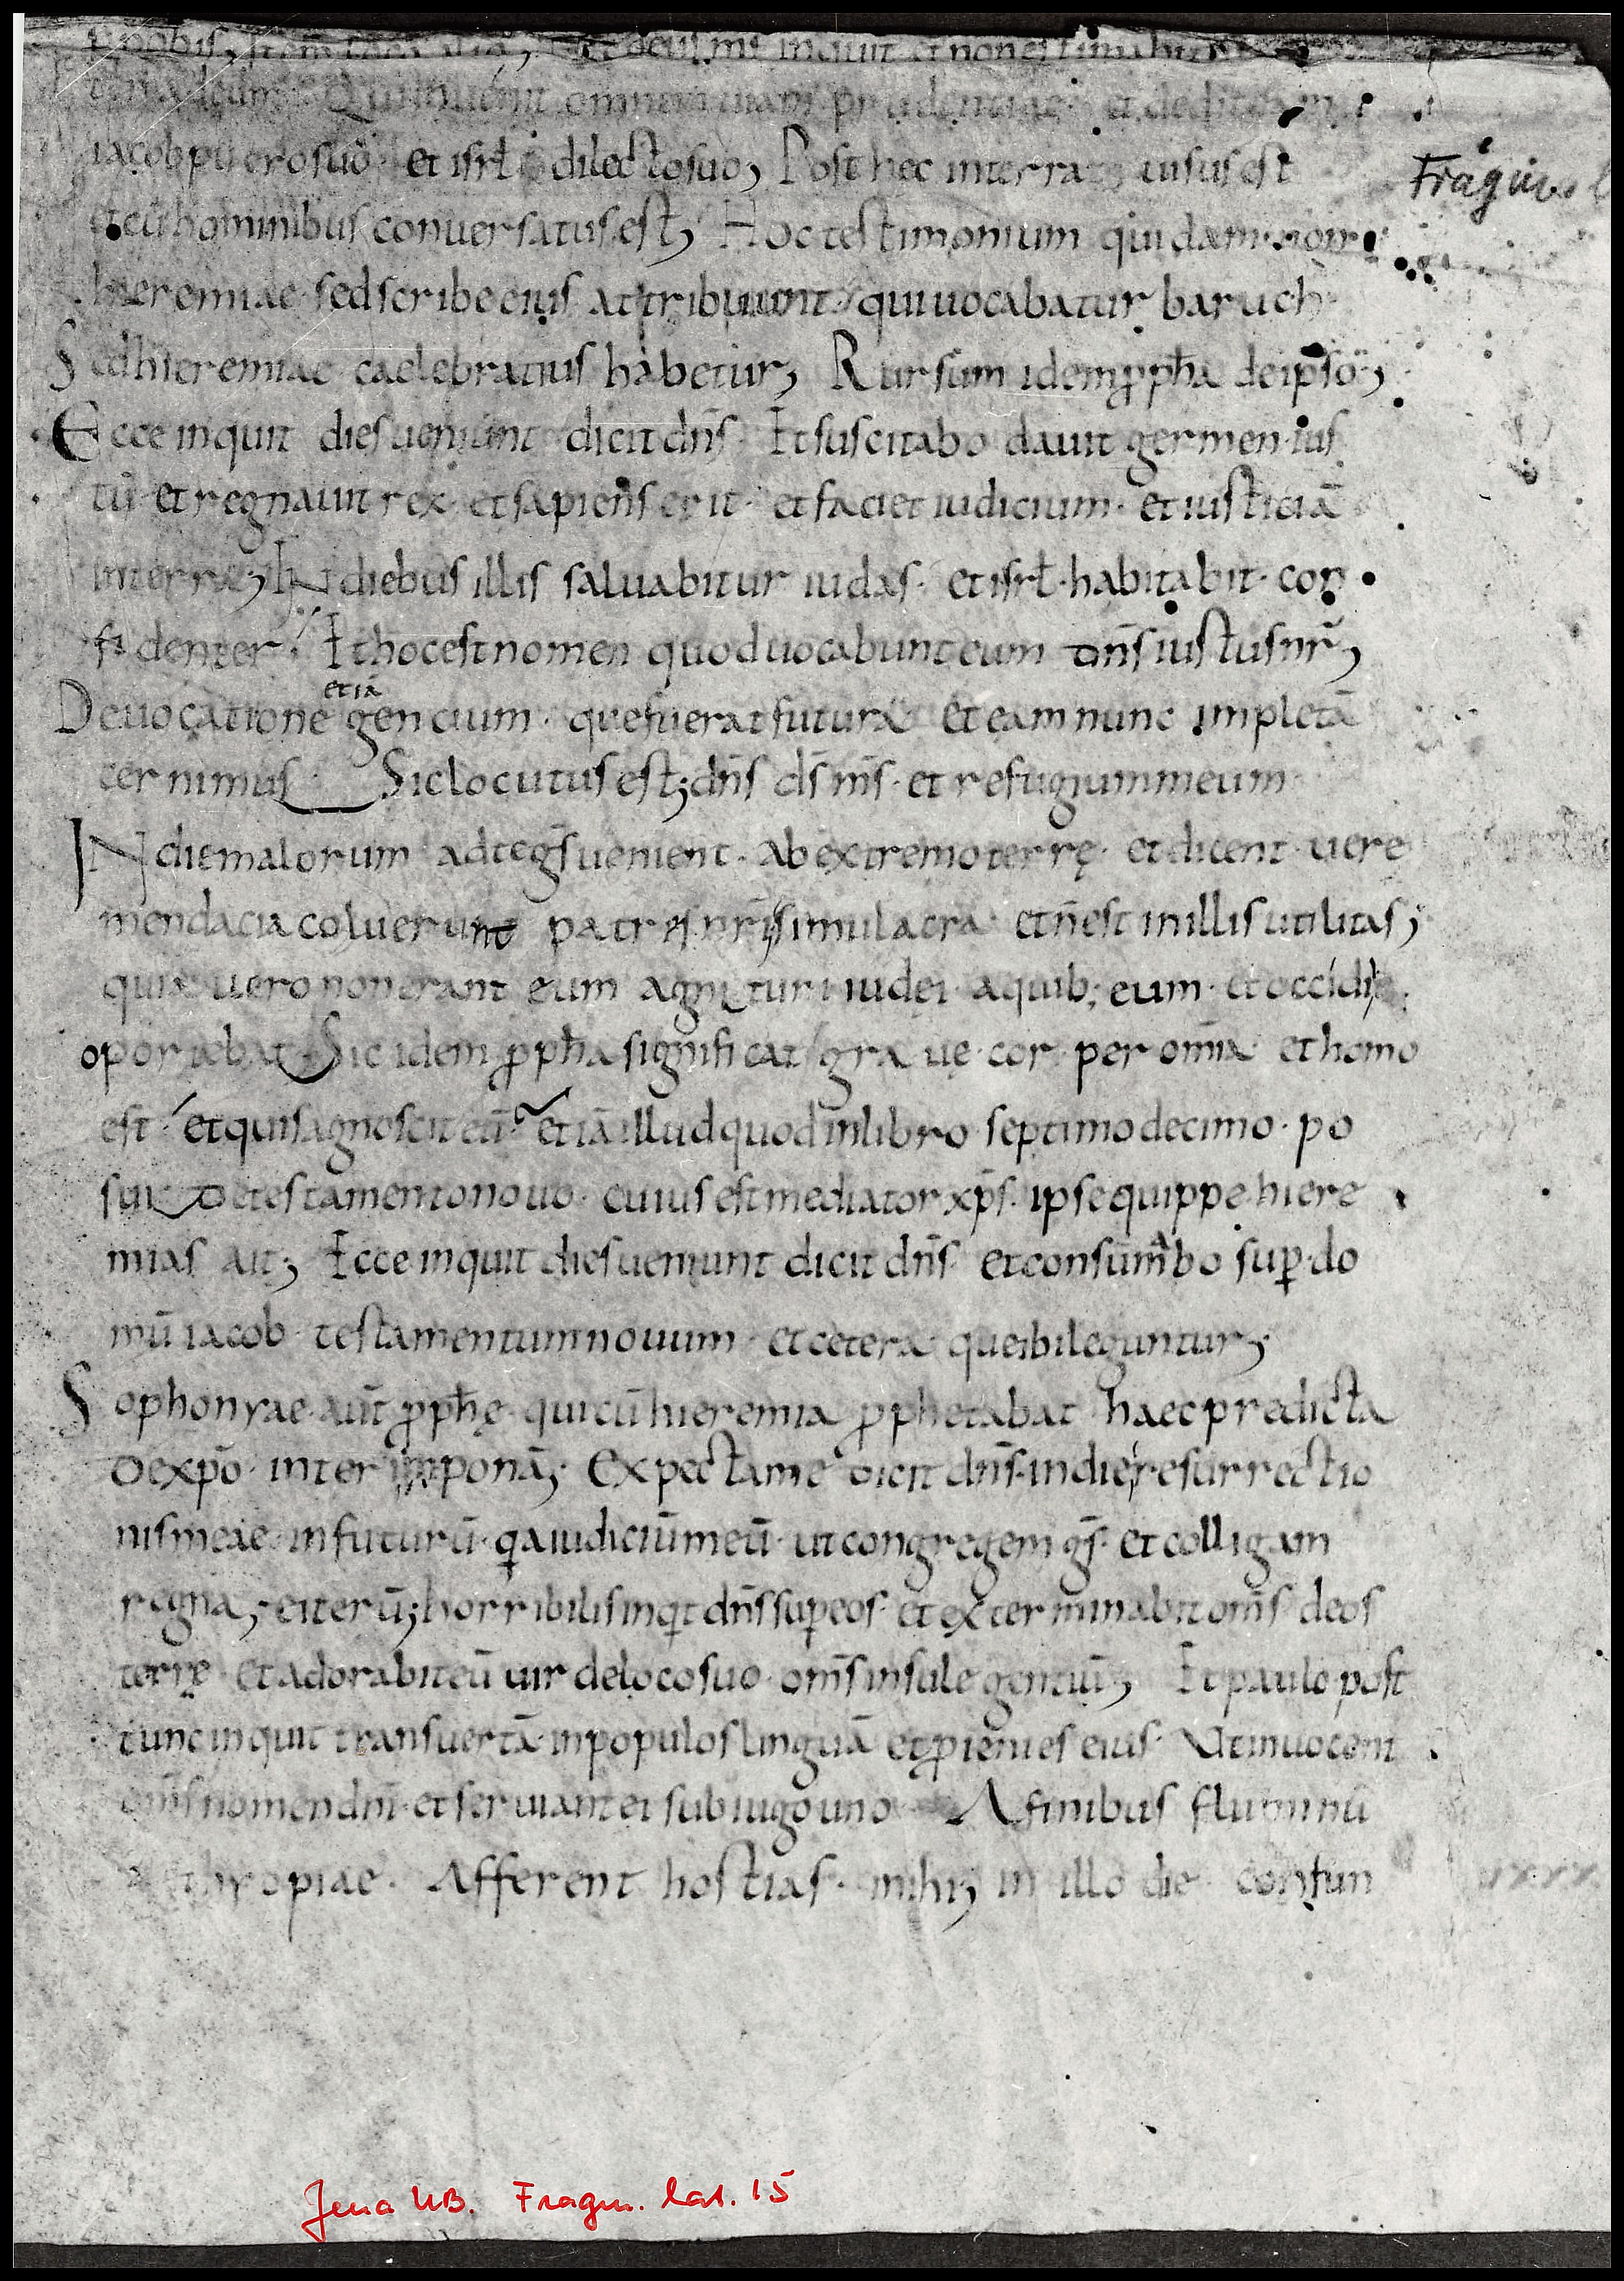 deus ms inquit et non estimabitur
ad eum. Qui inuenit omnem uiam prudentiae. et dedit eam
iacob puero suo et isrł dilecto suo, Post hec in terra uisus est
et cū hominibus conuersatus est, Hoc testimonium quidam non
hieremiae sed scribe eius attribuunt qui uocabatur baruch
Sed hieremiae caelebratius habetur, Rursum idem ꝓph̄a de ipso,
Ecce inquit dies ueniunt dicit dn̄s. Et suscitabo dauit germen ius
tū et regnauit rex et sapiens erit et faciet iudicium. et iusticiā
in terra, IN diebus illis saluabitur iudas. et isrł. habitabit. con
fidenter. Et hoc est nomen quod uocabunt eum dn̄s iustus nr̄,
etiā
De uocatione gencium. que fuerat futura et eam nunc impletā
cernimus Sic locutus est; dn̄s ds̄ ms̄. et refugium meum
IN die malorum ad te gs̄ uenient. ab extremo terrę. et dicent uere
mendacia coluerunt patres nr̄i simulacra et n̄ est in illis utilitas,
quia uero non erant eum agnituri iudei a quib; eum et occidi
oportebat Sic idem ꝓph̄a significat graue cor per om̄ia et homo
est et quis agnoscit eū etiā illud quod in libro septimo decimo. po
sui De testamento nouo. cuius est mediator xp̄s. ipse quippe hiere
mias ait, Ecce inquit dies ueniunt dicit dn̄s et consum̄abo suꝑ do
mū iacob testamentum nouum et cetera que ibi leguntur,
Sophonyae aūt ꝓph̄ę qui cū hieremia ꝓphetabat haec predicta
De xp̄o interim ponā, Expecta me dicit dn̄s. in die resurrectio
nis meae in futurū. qa iudiciū meū ut congregem gs̄. et colligam
regna, et iterū; horribilis inqt dn̄s suꝑ eos et exterminabit om̄s deos
terrę et adorabit eū uir de loco suo om̄s insule gentiū, Et paulo post
tunc inquit transuertā in populos linguā et ꝓienies eius. Ut inuocent
om̄s nomen dn̄i et seruiant ei sub iugo uno A finibus fluminū
aethyopiae. Afferent hostias. mihi, in illo die confun
Fragm.
Jena UB. Fragm. lat. 15